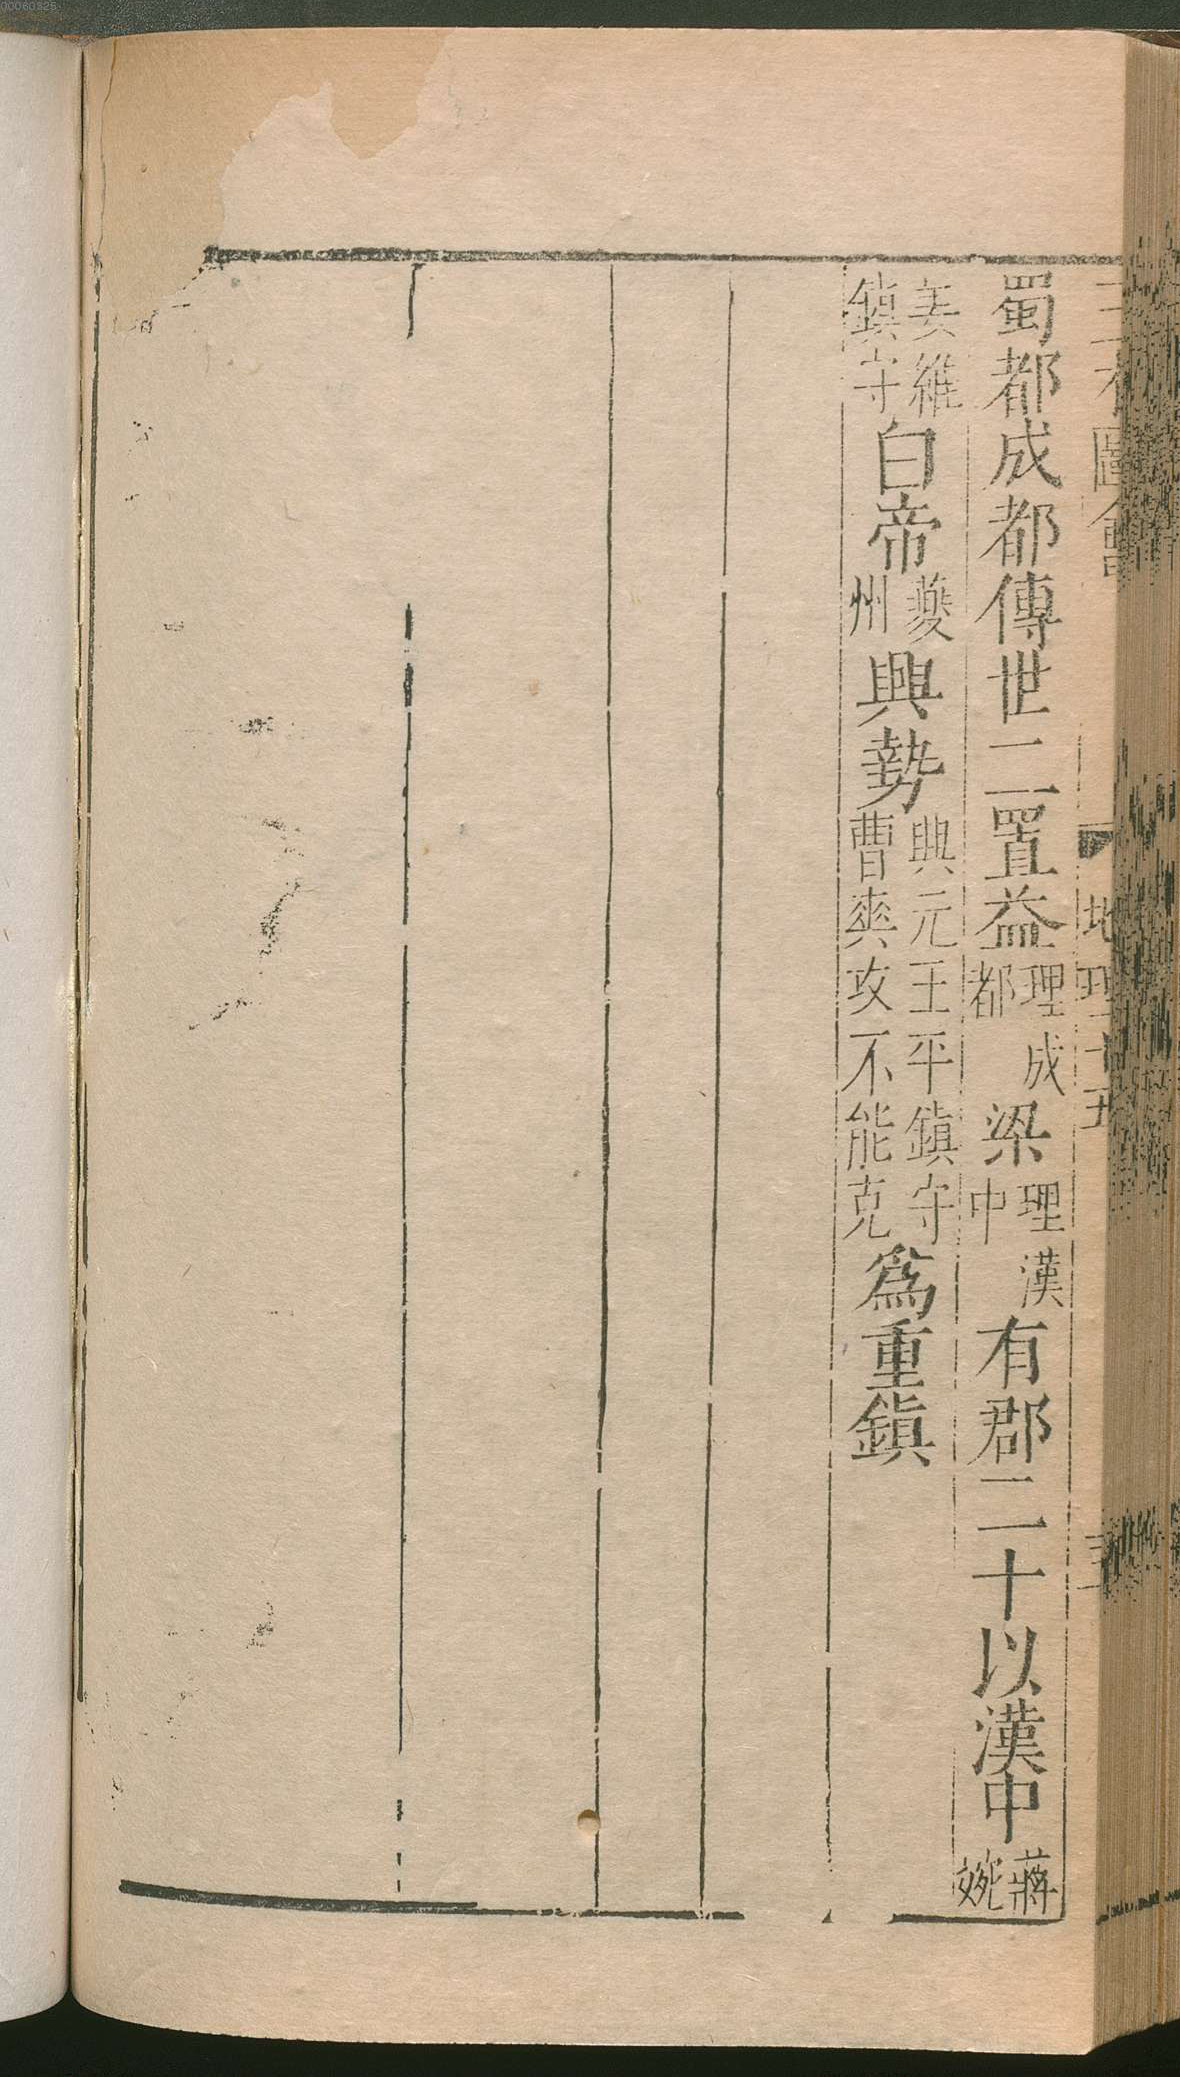 00060325
三才圖會 地理十五
蜀都成都傳世二置益理成都梁理漢中有郡二十以漢中蔣婉
姜維鎮守白帝夔州興勢興元王平鎮守曹爽攻不能克爲重鎮